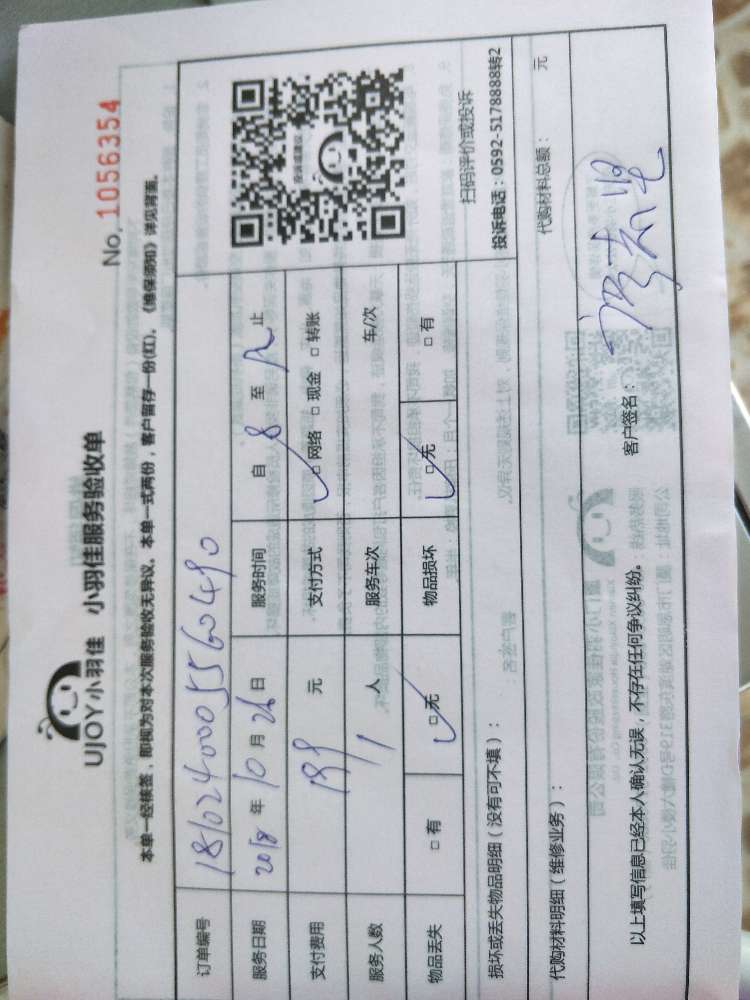 UJOY小羽佳 小羽佳服务验收单
No. 1056354
本单一经核签，即视为对本次服务验收无异议。本单一式两份，客户留存一份(红)。《维保须知》详见背面。
订单编号 18102400055560490
服务日期 2018 年 10 月 26 日 服务时间 自 8 至 止
支付费用 元 支付方式 □网络 □现金 □转账
服务人数 1 人 服务车次 车/次
物品丢失 □有 □无 物品损坏 □无 □有
投诉或建议
扫码评价或投诉
投诉电话：0592-5178888转2
损坏或丢失物品明细（没有可不填）：
代购材料明细（维修业务）： 代购材料总额： 元
以上填写信息已经本人确认无误，不存在任何争议纠纷。 客户签名：